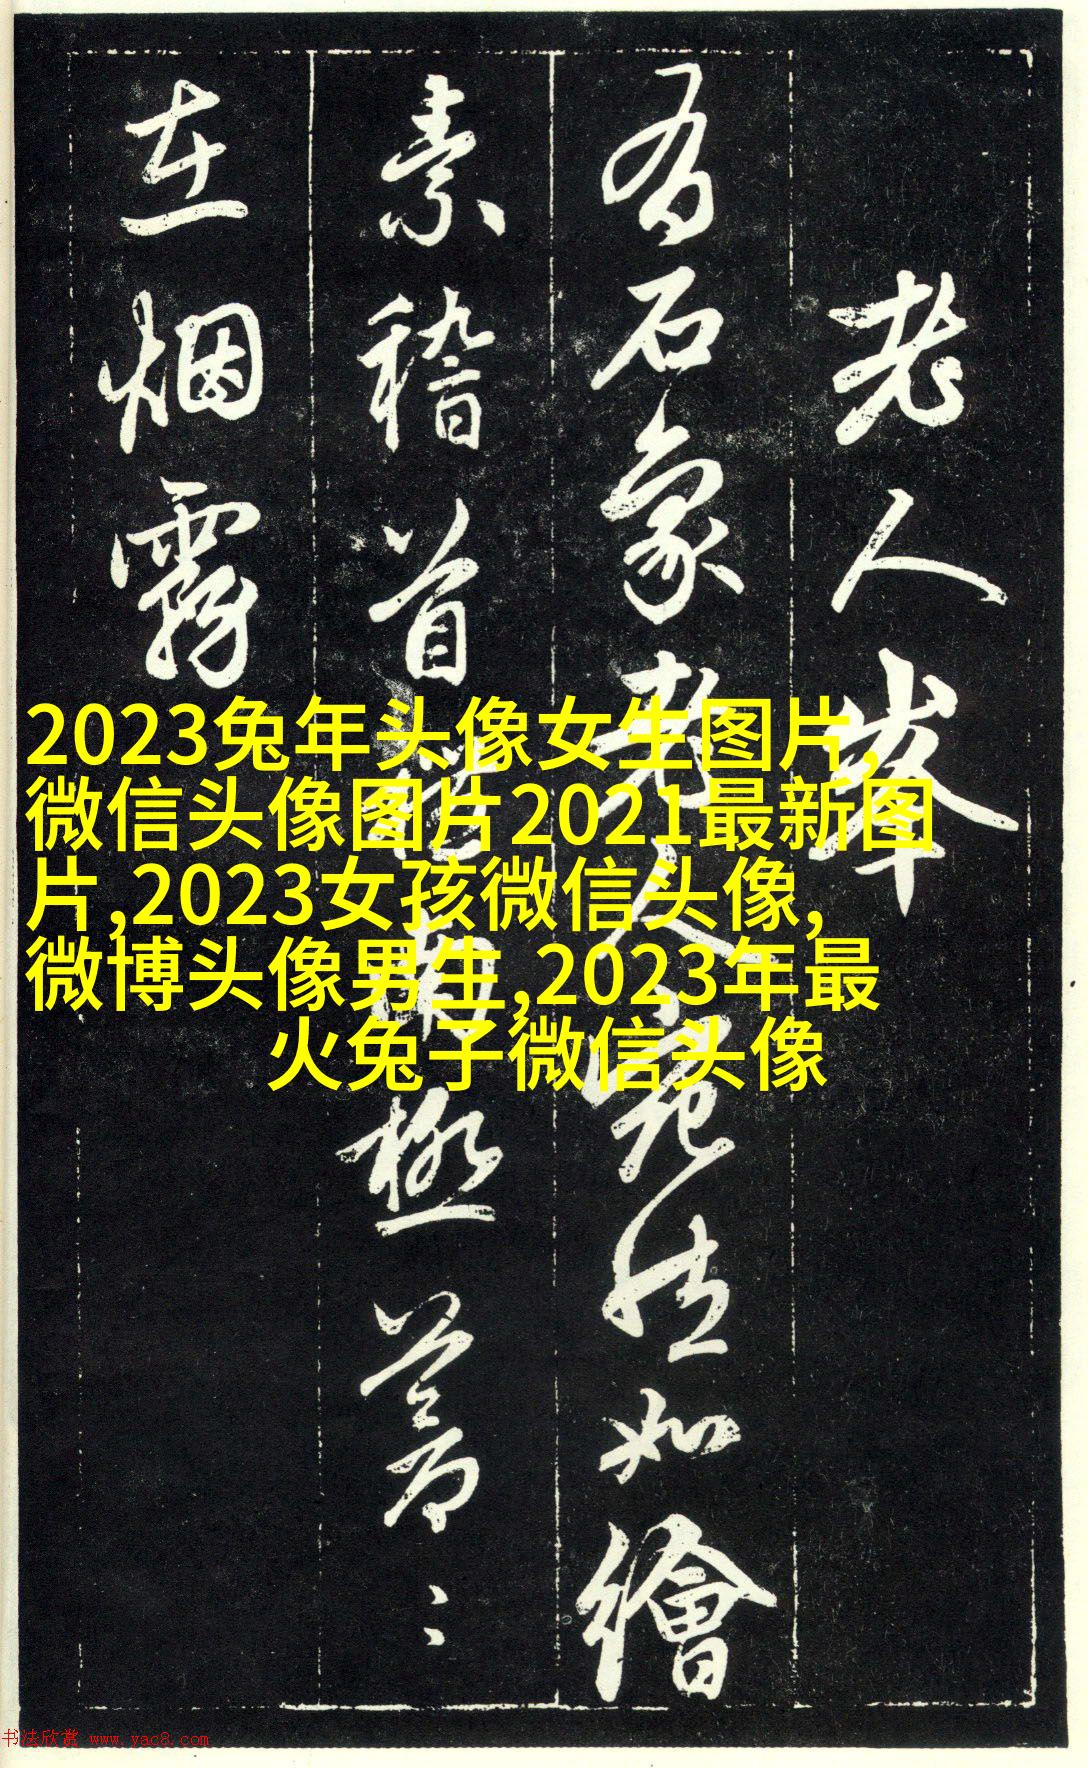 老人峯
有石象老人宛如繪
素稽首南極
在烟霧
2023兔年头像女生图片,
微信头像图片2021最新图
片,2023女孩微信头像,
微博头像男生,2023年最
火兔子微信头像
书法欣赏 www.yac8.com